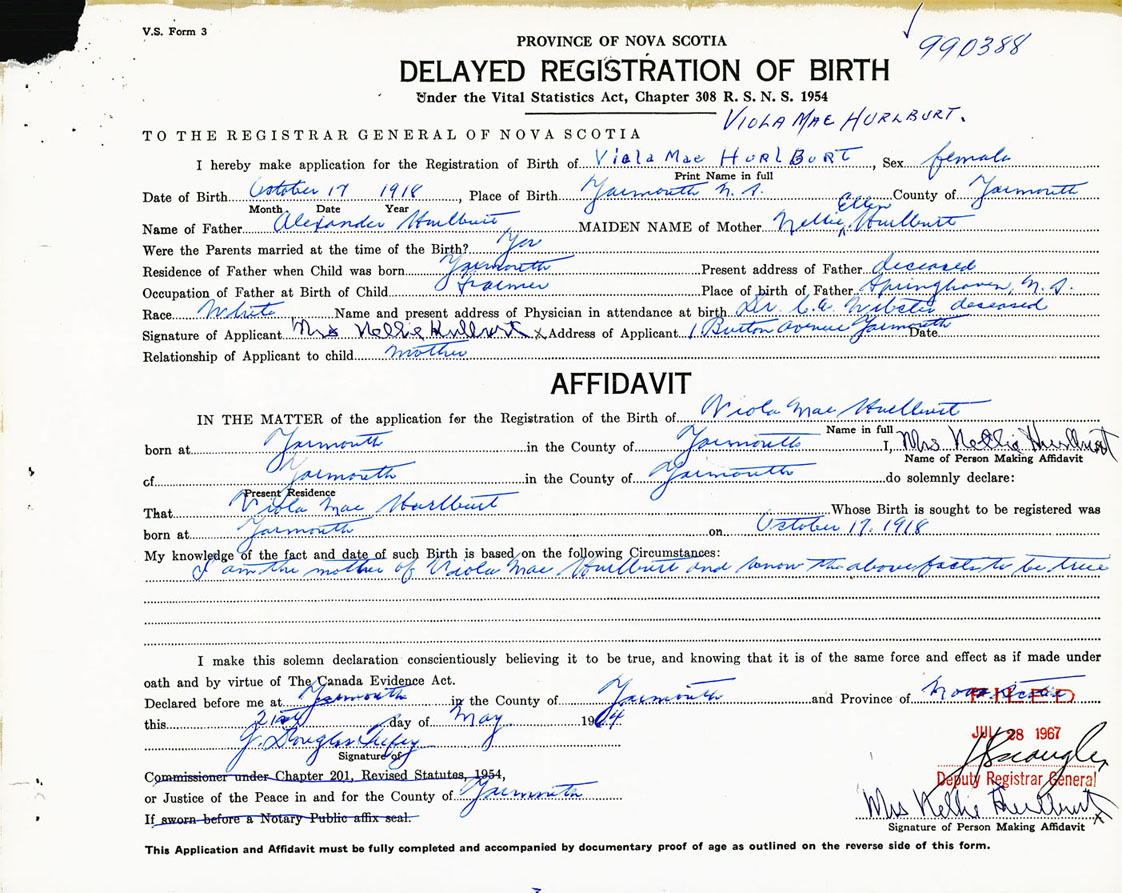 V.S. Form 3
990388
PROVINCE OF NOVA SCOTIA
DELAYED REGISTRATION OF BIRTH
Under the Vital Statistics Act, Chapter 308 R. S. N. S. 1954
VIOLA MAE HURLBURT.
TO THE REGISTRAR GENERAL OF NOVA SCOTIA
I hereby make application for the Registration of Birth of Viola Mae HURLBURT, Sex female
Print Name in full
Date of Birth October 17 1918, Place of Birth Yarmouth N. S. County of Yarmouth
Month Date Year
Name of Father Alexander Hurlburt MAIDEN NAME of Mother Nellie Ellen Hurlburt
Were the Parents married at the time of the Birth? Yes
Residence of Father when Child was born Yarmouth Present address of Father deceased
Occupation of Father at Birth of Child Farmer Place of birth of Father Springhaven, N. S.
Race White Name and present address of Physician in attendance at birth Dr. C.A. Webster deceased
Signature of Applicant Mrs Nellie Hurlburt x Address of Applicant 1 Burton Avenue Yarmouth Date
Relationship of Applicant to child mother
AFFIDAVIT
IN THE MATTER of the application for the Registration of the Birth of Viola Mae Hurlburt
Name in full
born at Yarmouth in the County of Yarmouth I, Mrs Nellie Hurlburt
Name of Person Making Affidavit
of Yarmouth in the County of Yarmouth do solemnly declare:
Present Residence
That Viola Mae Hurlburt Whose Birth is sought to be registered was
born at Yarmouth on October 17, 1918
My knowledge of the fact and date of such Birth is based on the following Circumstances:
I am the mother of Viola Mae Hurlburt and know the above facts to be true
I make this solemn declaration conscientiously believing it to be true, and knowing that it is of the same force and effect as if made under
oath and by virtue of The Canada Evidence Act.
Declared before me at Yarmouth in the County of Yarmouth and Province of Nova Scotia
FILED
this 21st day of May 1964
JUL 28 1967
J. Douglas
Signature of
Commissioner under Chapter 201, Revised Statutes, 1954,
Deputy Registrar General
or Justice of the Peace in and for the County of Yarmouth
Mrs Nellie Hurlburt x
If sworn before a Notary Public affix seal.
Signature of Person Making Affidavit
This Application and Affidavit must be fully completed and accompanied by documentary proof of age as outlined on the reverse side of this form.